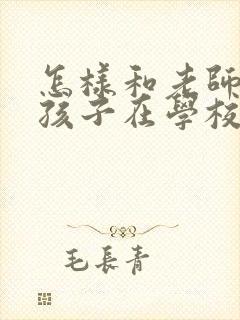 怎樣和老師
孩子在學校
毛長青